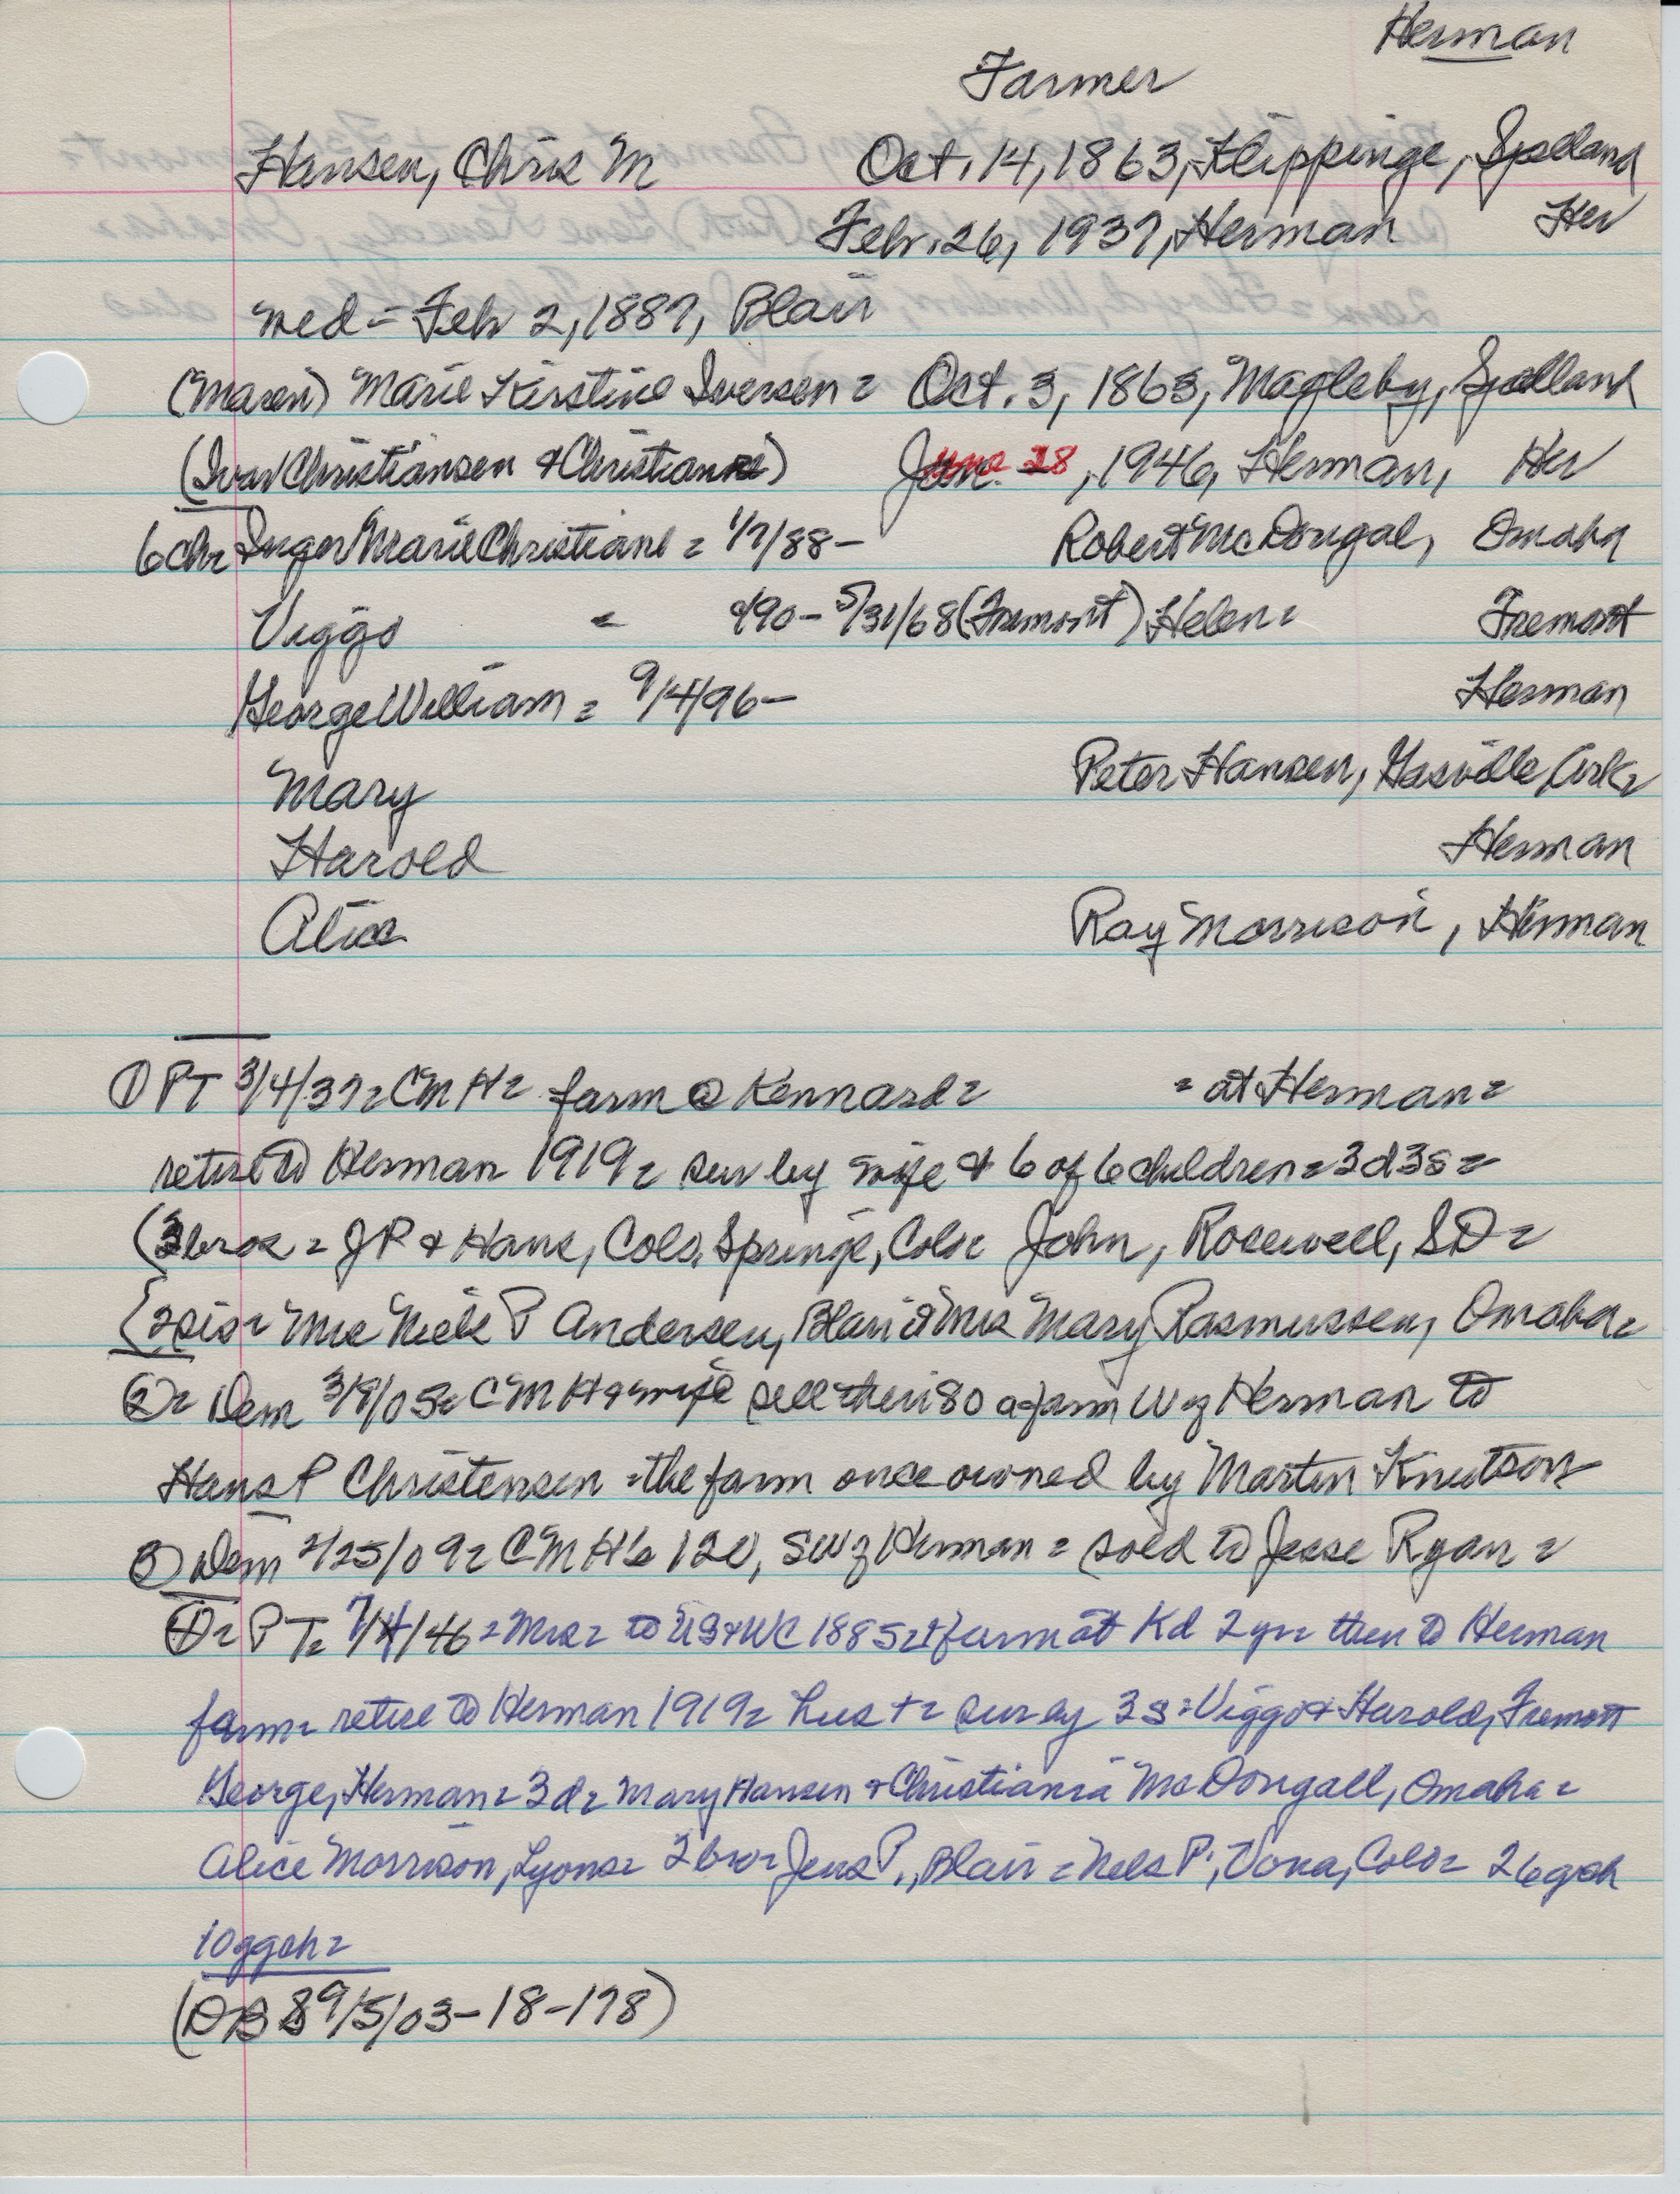 Herman
Farmer
Hansen, Chris M Oct. 14, 1863, Klippinge, Sjelland
Febr. 26, 1937, Herman Her
med - Feb 2, 1887, Blair
(Maren) Marie Kirstine Iversen = Oct. 3, 1863, Magleby, Sjelland
(Ivar Christiansen & Christiane) June 28, 1946, Herman, Her
6 ch = Inger Marie Christiane = 1/7/88- Robert McDougal, Omaha
Viggo = 90 - 5/31/68 (Fremont) Helen = Fremont
George William = 9/4/96- Herman
Mary Peter Hansen, Gasville Ark =
Harold Herman
Alice Ray Morrison, Herman
① PT 3/4/37 = CMH = farm @ Kennard = = at Herman =
retire to Herman 1919 = sur by wife & 6 of 6 children = 3d 3s =
(3 bros = JP & Hans, Colo. Springs, Colo = John, Rosewell, SD =
{2 sis = Mrs Niels P Andersen, Blair & Mrs Mary Rasmussen, Omaha =
② = Dem 3/9/05 = CMH & wife sell their 80 a farm W of Herman to
Hans P Christensen = the farm once owned by Martin Knutson
③ Dem 2/25/09 = CMH's 120, SW of Herman = sold to Jesse Ryan =
④ = PT = 7/4/46 = Mrs = to US & WC 1885 = & farm at Kd 2 yr = then to Herman
farm = retire to Herman 1919 = hus + = sur by 3s = Viggo & Harold, Fremont
George, Herman = 3d = Mary Hansen & Christiania McDougall, Omaha =
Alice Morrison, Lyons = 2 bro = Jens P., Blair = Nels P., Vona, Colo = 26 gch
10 ggch =
(DB 8 9/5/03-18-178)